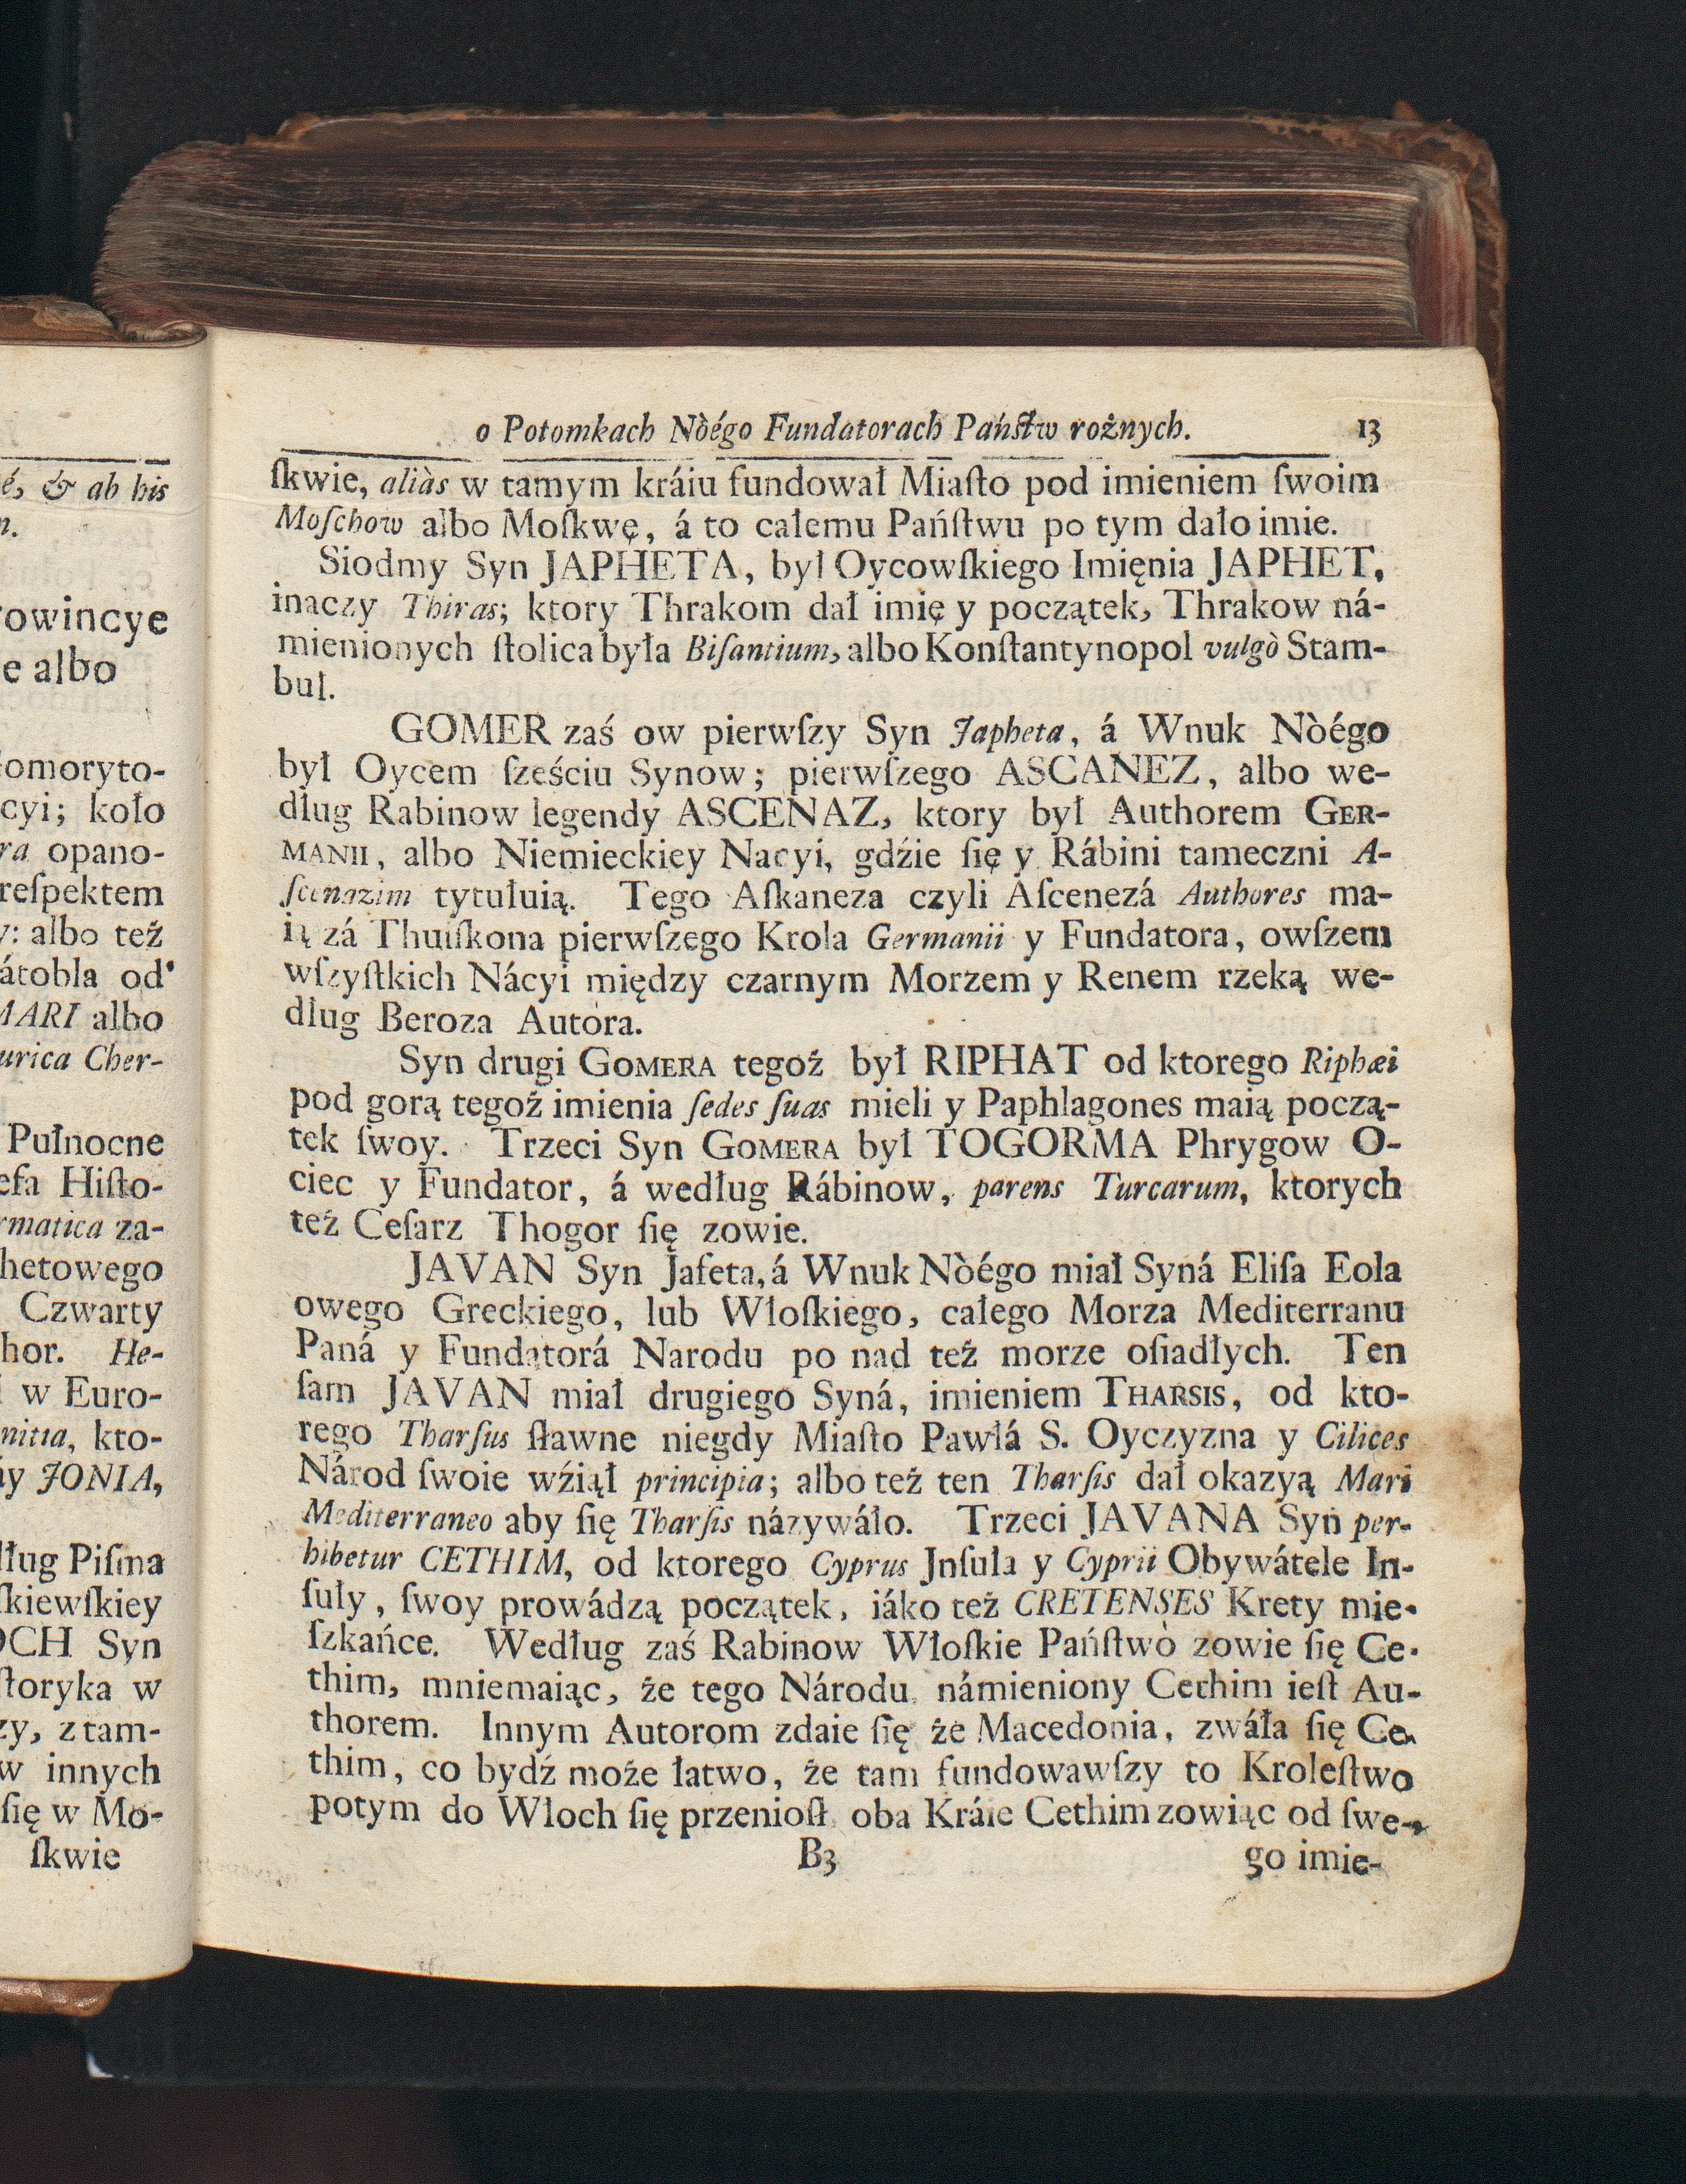 é, & ab his
n.
rowincye
e albo
łomoryto-
cyi; koło
ra opano-
reſpektem
y: albo też
átobla od
MARI albo
urica Cher-
Pułnocne
efa Hiſto-
rmatica za-
hetowego
Czwarty
hor. He-
w Euro-
nitia, kto-
ty JONIA,
dług Piſma
ſkiewſkiey
OCH Syn
ſtoryka w
zy, z tam-
w innych
ſię w Mo-
ſkwie
o Potomkach Nòégo Fundatorach Państw rożnych. 13
ſkwie, aliàs w tamym kráiu fundował Miaſto pod imieniem ſwoim
Moſchow albo Moſkwę, á to całemu Pańſtwu po tym dało imie.
Siodmy Syn JAPHETA, był Oycowſkiego Imięnia JAPHET,
inaczy Thiras; ktory Thrakom dał imię y początek, Thrakow ná-
mienionych ſtolica była Biſantium, albo Konſtantynopol vulgò Stam-
bul.
GOMER zaś ow pierwſzy Syn Japheta, á Wnuk Nòégo
był Oycem ſześciu Synow; pierwſzego ASCANEZ, albo we-
dług Rabinow legendy ASCENAZ, ktory był Authorem GER-
MANII, albo Niemieckiey Nacyi, gdźie ſię y Rábini tameczni A-
ſcenazim tytułuią. Tego Aſkaneza czyli Aſcenezá Authores ma-
ią zá Thuiſkona pierwſzego Krola Germanii y Fundatora, owſzem
wſzyſtkich Nácyi między czarnym Morzem y Renem rzeką we-
dług Beroza Autora.
Syn drugi GOMERA tegoż był RIPHAT od ktorego Riphæi
pod gorą tegoż imienia ſedes ſuas mieli y Paphlagones maią począ-
tek ſwoy. Trzeci Syn GOMERA był TOGORMA Phrygow O-
ciec y Fundator, á według Rábinow, parens Turcarum, ktorych
też Ceſarz Thogor ſię zowie.
JAVAN Syn Jafeta, á Wnuk Nòégo miał Syná Eliſa Eola
owego Greckiego, lub Włoſkiego, całego Morza Mediterranu
Paná y Fundatorá Narodu po nad też morze oſiadłych. Ten
ſam JAVAN miał drugiego Syná, imieniem THARSIS, od kto-
rego Tharſus ſławne niegdy Miaſto Pawłá S. Oyczyzna y Cilices
Národ ſwoie wźiął principia; albo też ten Tharſis dał okazyą Mari
Mediterraneo aby ſię Tharſis názywáło. Trzeci JAVANA Syn per-
hibetur CETHIM, od ktorego Cyprus Jnſuła y Cyprii Obywátele In-
ſuły, ſwoy prowádzą początek, iáko też CRETENSES Krety mie-
ſzkańce. Według zaś Rabinow Włoſkie Pańſtwo zowie ſię Ce-
thim, mniemaiąc, że tego Národu námieniony Cethim ieſt Au-
thorem. Innym Autorom zdaie ſię że Macedonia, zwáła ſię Ce-
thim, co bydź może łatwo, że tam fundowawſzy to Kroleſtwo
potym do Włoch ſię przenioſł oba Kráie Cethim zowiąc od ſwe-
B3 go imie-